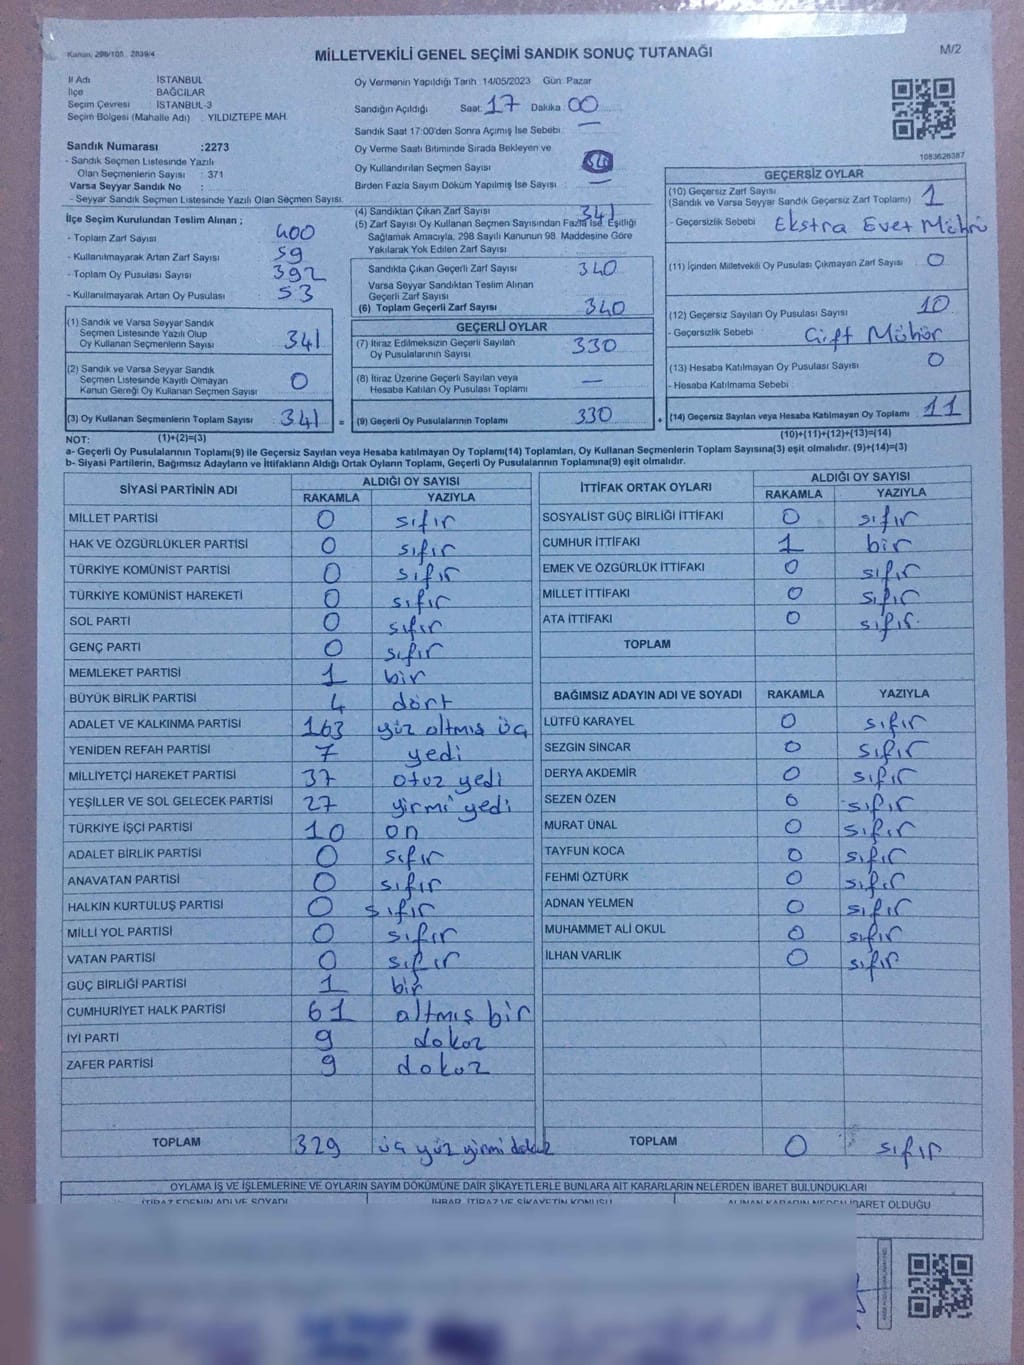 Kanun: 298/105 2839/4
MİLLETVEKİLİ GENEL SEÇİMİ SANDIK SONUÇ TUTANAĞI
M/2
İl Adı : İSTANBUL
İlçe : BAĞCILAR
Seçim Çevresi : İSTANBUL-3
Seçim Bölgesi (Mahalle Adı) : YILDIZTEPE MAH.
Sandık Numarası :2273
- Sandık Seçmen Listesinde Yazılı
Olan Seçmenlerin Sayısı : 371
Varsa Seyyar Sandık No :
- Seyyar Sandık Seçmen Listesinde Yazılı Olan Seçmen Sayısı:
Oy Vermenin Yapıldığı Tarih :14/05/2023 Gün: Pazar
Sandığın Açıldığı Saat: 17 Dakika: 00
Sandık Saat 17:00'den Sonra Açımış İse Sebebi : —
Oy Verme Saati Bitiminde Sırada Bekleyen ve
Oy Kullandırılan Seçmen Sayısı :
Birden Fazla Sayım Döküm Yapılmış İse Sayısı : —
1083626387
İlçe Seçim Kurulundan Teslim Alınan ;
- Toplam Zarf Sayısı : 400
- Kullanılmayarak Artan Zarf Sayısı : 59
- Toplam Oy Pusulası Sayısı : 392
- Kullanılmayarak Artan Oy Pusulası : 53
(1) Sandık ve Varsa Seyyar Sandık
Seçmen Listesinde Yazılı Olup
Oy Kullanan Seçmenlerin Sayısı 341
(2) Sandık ve Varsa Seyyar Sandık
Seçmen Listesinde Kayıtlı Olmayan
Kanun Gereği Oy Kullanan Seçmen Sayısı 0
(3) Oy Kullanan Seçmenlerin Toplam Sayısı 341 =
(4) Sandıktan Çıkan Zarf Sayısı 341
(5) Zarf Sayısı Oy Kullanan Seçmen Sayısından Fazla ise, Eşitliği
Sağlamak Amacıyla, 298 Sayılı Kanunun 98. Maddesine Göre
Yakılarak Yok Edilen Zarf Sayısı :
Sandıkta Çıkan Geçerli Zarf Sayısı 340
Varsa Seyyar Sandıktan Teslim Alınan
Geçerli Zarf Sayısı
(6) Toplam Geçerli Zarf Sayısı 340
GEÇERLİ OYLAR
(7) İtiraz Edilmeksizin Geçerli Sayılan
Oy Pusulalarının Sayısı 330
(8) İtiraz Üzerine Geçerli Sayılan veya
Hesaba Katılan Oy Pusulası Toplamı —
(9) Geçerli Oy Pusulalarının Toplamı 330 +
GEÇERSİZ OYLAR
(10) Geçersiz Zarf Sayısı
(Sandık ve Varsa Seyyar Sandık Geçersiz Zarf Toplamı) 1
- Geçersizlik Sebebi : Ekstra Evet Mührü
(11) İçinden Milletvekili Oy Pusulası Çıkmayan Zarf Sayısı 0
(12) Geçersiz Sayılan Oy Pusulası Sayısı 10
- Geçersizlik Sebebi : Çift Mühür
(13) Hesaba Katılmayan Oy Pusulası Sayısı 0
- Hesaba Katılmama Sebebi :
(14) Geçersiz Sayılan veya Hesaba Katılmayan Oy Toplamı 11
NOT: (1)+(2)=(3)
(10)+(11)+(12)+(13)=(14)
a- Geçerli Oy Pusulalarının Toplamı(9) ile Geçersiz Sayılan veya Hesaba katılmayan Oy Toplamı(14) Toplamları, Oy Kullanan Seçmenlerin Toplam Sayısına(3) eşit olmalıdır. (9)+(14)=(3)
b- Siyasi Partilerin, Bağımsız Adayların ve İttifakların Aldığı Ortak Oyların Toplamı, Geçerli Oy Pusulalarının Toplamına(9) eşit olmalıdır.
SİYASİ PARTİNİN ADI ALDIĞI OY SAYISI
RAKAMLA YAZIYLA
MİLLET PARTİSİ 0 sıfır
HAK VE ÖZGÜRLÜKLER PARTİSİ 0 sıfır
TÜRKİYE KOMÜNİST PARTİSİ 0 sıfır
TÜRKİYE KOMÜNİST HAREKETİ 0 sıfır
SOL PARTİ 0 sıfır
GENÇ PARTİ 0 sıfır
MEMLEKET PARTİSİ 1 bir
BÜYÜK BİRLİK PARTİSİ 4 dört
ADALET VE KALKINMA PARTİSİ 163 yüz altmış üç
YENİDEN REFAH PARTİSİ 7 yedi
MİLLİYETÇİ HAREKET PARTİSİ 37 otuz yedi
YEŞİLLER VE SOL GELECEK PARTİSİ 27 yirmi yedi
TÜRKİYE İŞÇİ PARTİSİ 10 on
ADALET BİRLİK PARTİSİ 0 sıfır
ANAVATAN PARTİSİ 0 sıfır
HALKIN KURTULUŞ PARTİSİ 0 sıfır
MİLLİ YOL PARTİSİ 0 sıfır
VATAN PARTİSİ 0 sıfır
GÜÇ BİRLİĞİ PARTİSİ 1 bir
CUMHURİYET HALK PARTİSİ 61 altmış bir
İYİ PARTİ 9 dokuz
ZAFER PARTİSİ 9 dokuz
TOPLAM 329 üç yüz yirmi dokuz
İTTİFAK ORTAK OYLARI ALDIĞI OY SAYISI
RAKAMLA YAZIYLA
SOSYALİST GÜÇ BİRLİĞİ İTTİFAKI 0 sıfır
CUMHUR İTTİFAKI 1 bir
EMEK VE ÖZGÜRLÜK İTTİFAKI 0 sıfır
MİLLET İTTİFAKI 0 sıfır
ATA İTTİFAKI 0 sıfır
TOPLAM
BAĞIMSIZ ADAYIN ADI VE SOYADI RAKAMLA YAZIYLA
LÜTFÜ KARAYEL 0 sıfır
SEZGİN SİNCAR 0 sıfır
DERYA AKDEMİR 0 sıfır
SEZEN ÖZEN 0 sıfır
MURAT ÜNAL 0 sıfır
TAYFUN KOCA 0 sıfır
FEHMİ ÖZTÜRK 0 sıfır
ADNAN YELMEN 0 sıfır
MUHAMMET ALİ OKUL 0 sıfır
İLHAN VARLIK 0 sıfır
TOPLAM 0 sıfır
OYLAMA İŞ VE İŞLEMLERİNE VE OYLARIN SAYIM DÖKÜMÜNE DAİR ŞİKAYETLERLE BUNLARA AİT KARARLARIN NELERDEN İBARET BULUNDUKLARI
İTİRAZ EDENİN ADI VE SOYADI İHBAR, İTİRAZ VE ŞİKAYETİN KONUSU ALINAN KARARIN NEDEN İBARET OLDUĞU